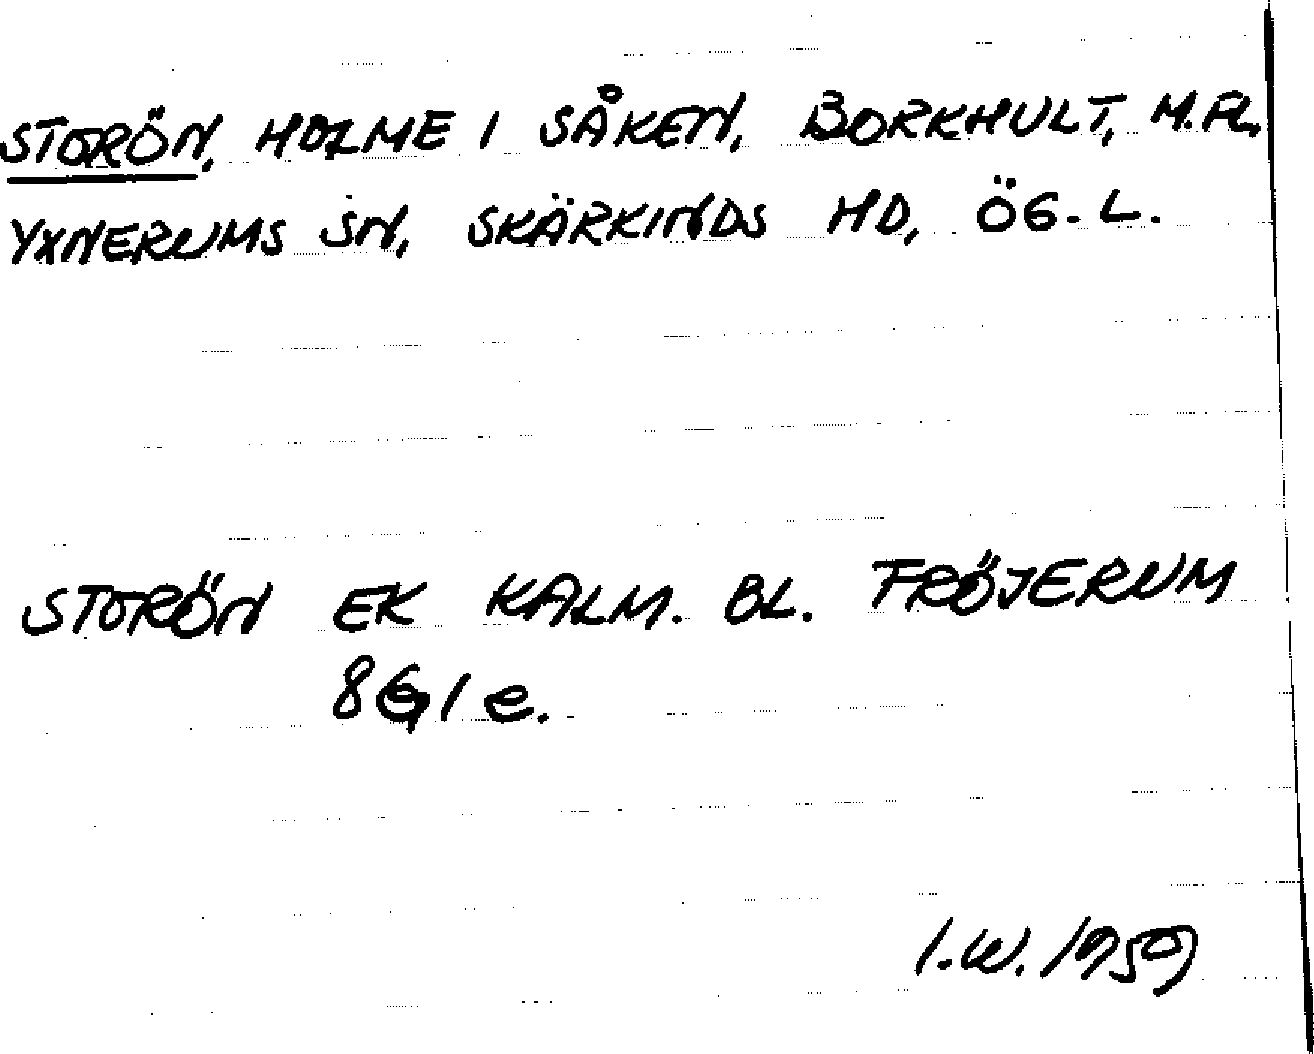 STORÖN, HOLME I SÅKEN, BORKHULT, M.FL.
YXNERUMS SN, SKÄRKINDS HD, ÖG. L.
STORÖN EK KALM. BL. FRÖJERUM
8G1e.
I.W. 1959